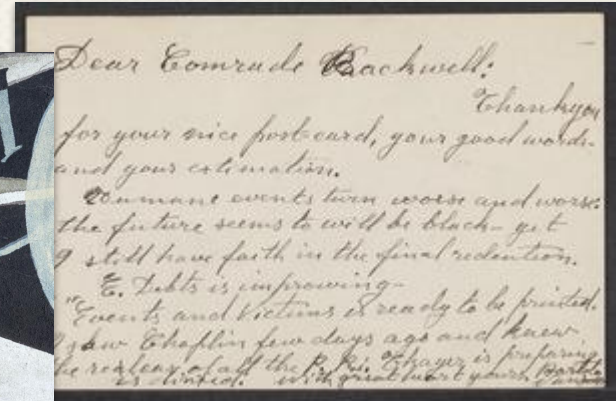 Dear Comrade Backwell:
Thank you
for your nice post-card, your good words-
and your estimation.
Humane events turn worse and worse.
the future seems to will be black - yet
I still have faith in the final redention.
E. Debts is improwing-
"Events and Victims is ready to be printed.
I saw Chaplin few days ago and knew
the of all the P. Ri. Thayer is preparing
with great heart yours Bartolo
Vanzetti